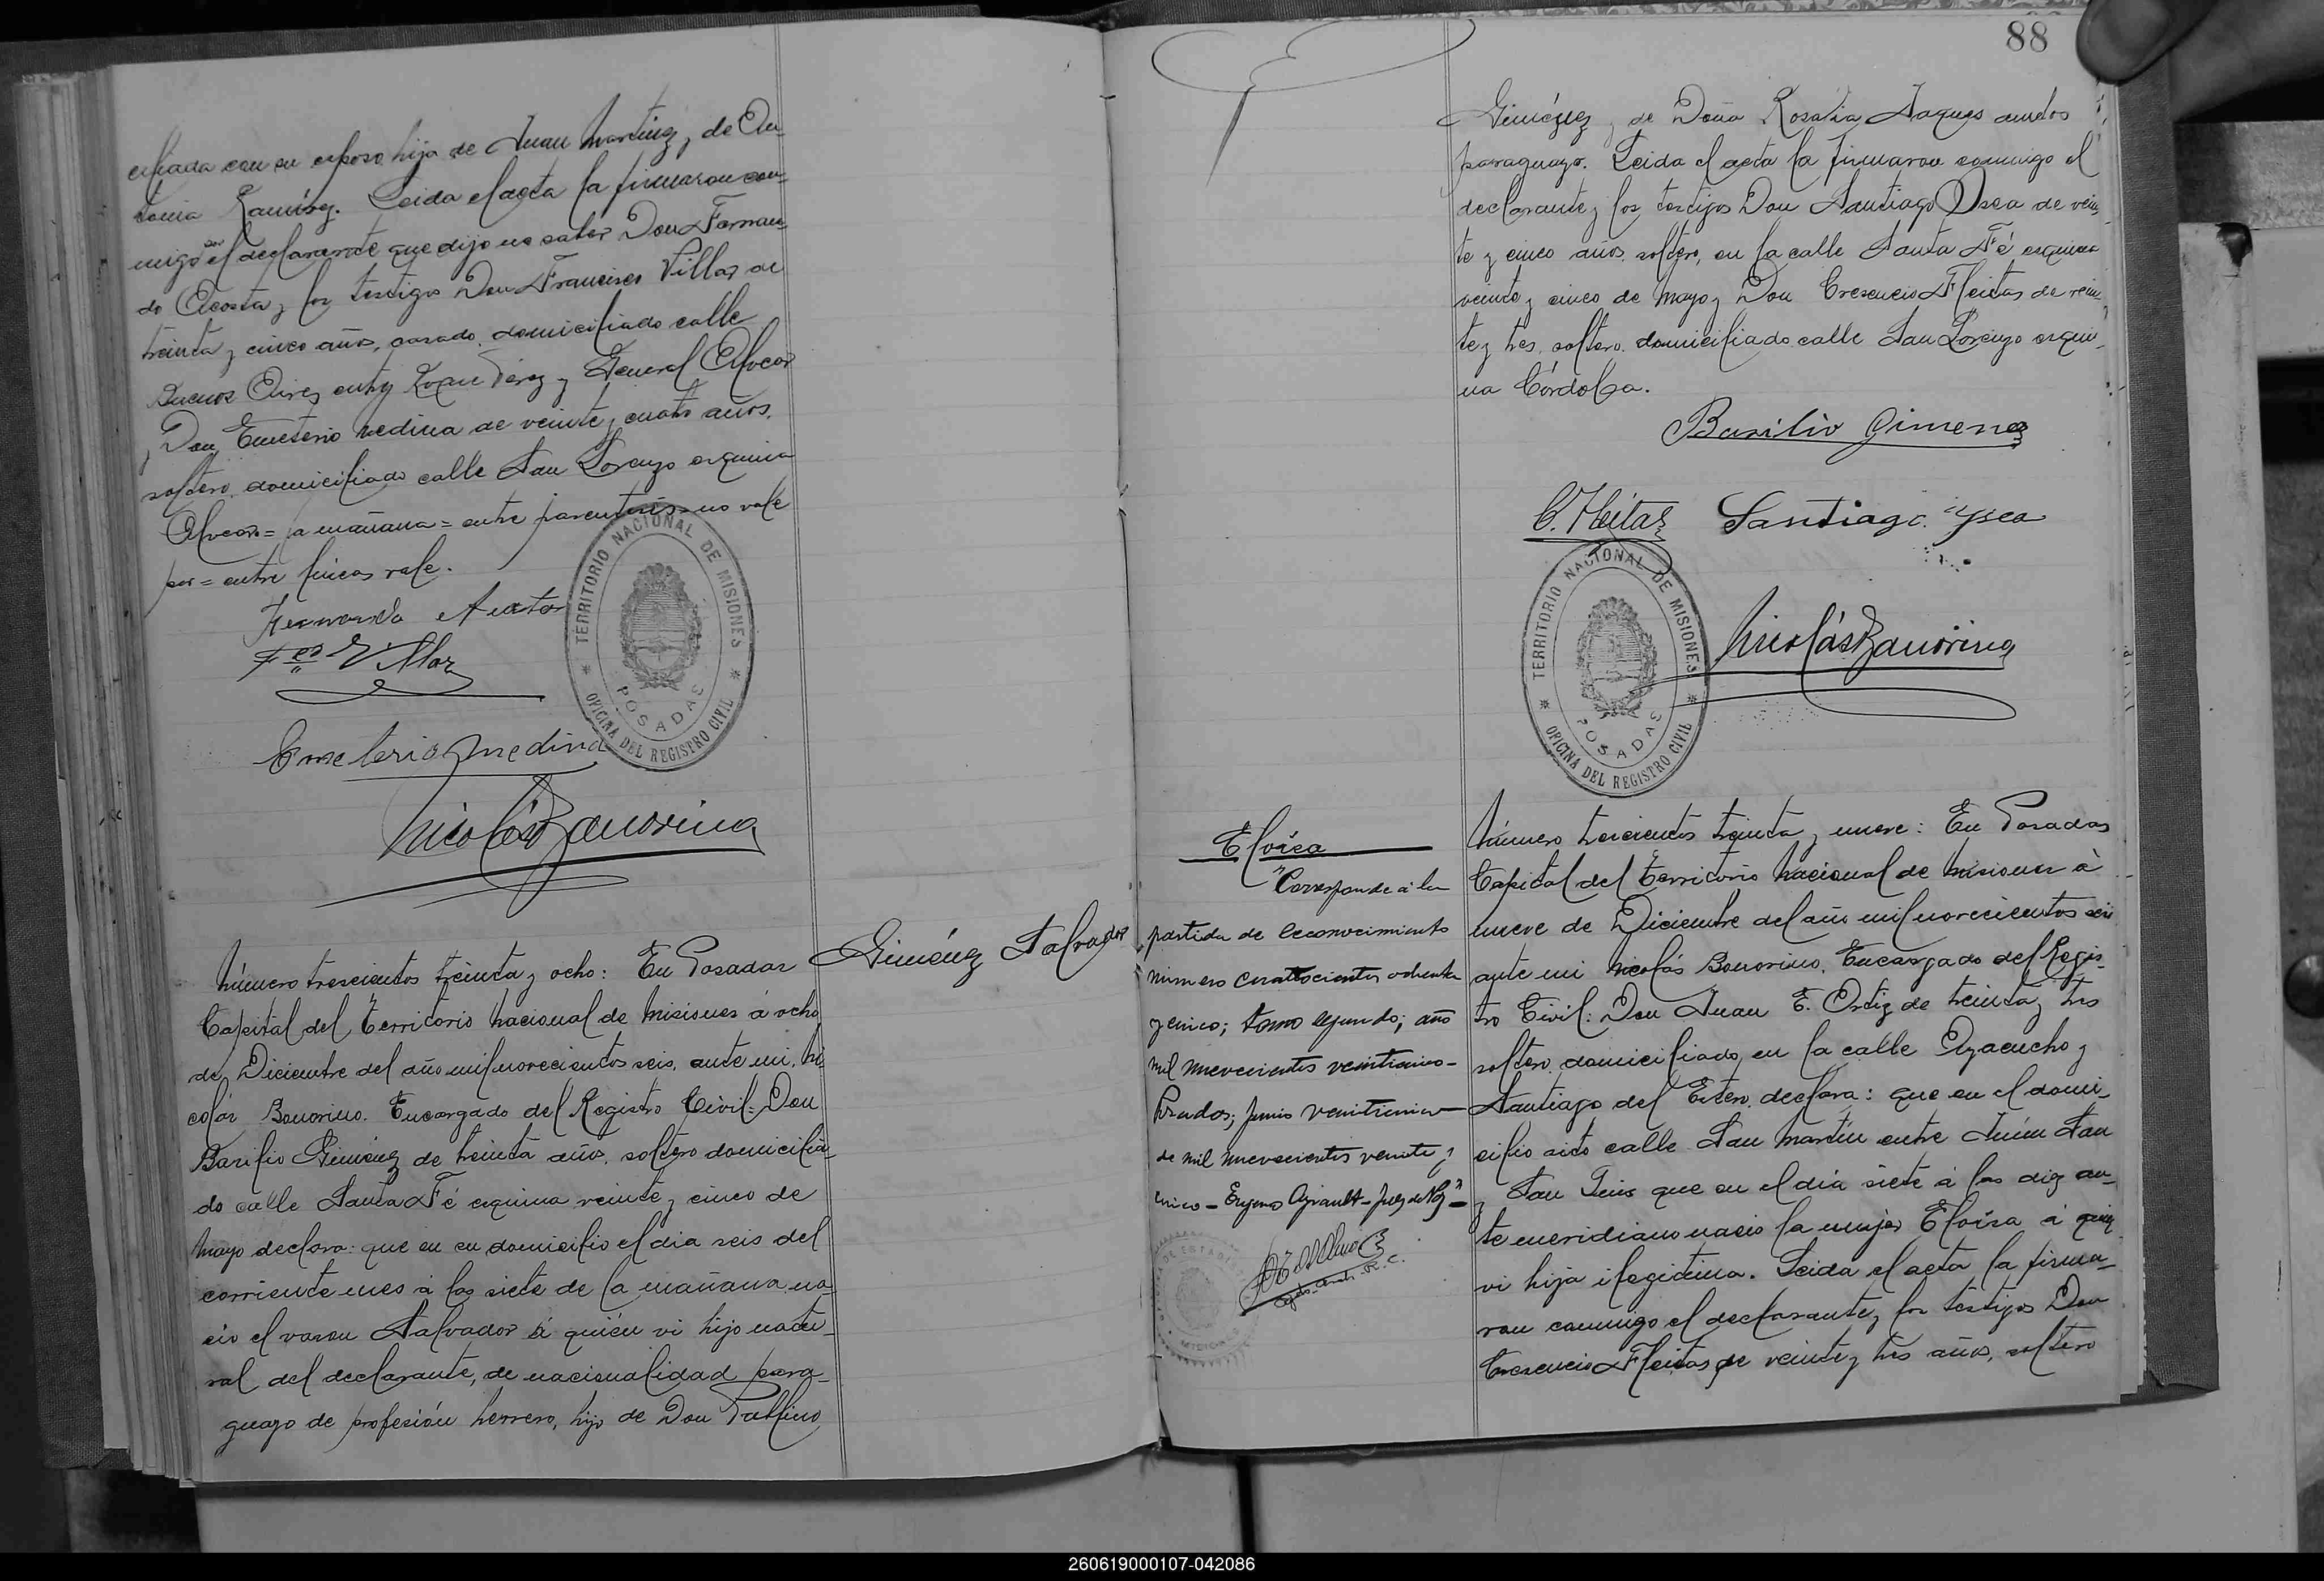 ciliada con su esposo, hija de Juan Martinez y de An-
tonia Ramirez. Leida el acta la firmaron con-
migo por el declarante que dijo no saber Don Fernan-
do Acosta y los testigos Don Francisco Villar de
treinta y cinco años, casado, domiciliado calle
Buenos Aires entre Roque Perez y General Alvear
y Don Emeterio Medina de veinte y cuatro años,
soltero, domiciliado calle San Lorenzo esquina
Alvear = la mañana = entre parentesis = no vale
por = entre lineas vale.
Fernando Acosta
Fco Villar
Emeterio Medina
Nicolás Bonorino
TERRITORIO NACIONAL DE MISIONES
POSADAS
OFICINA DEL REGISTRO CIVIL
Giménez Salvador
Número trescientos treinta y ocho: En Posadas
Capital del Territorio Nacional de Misiones á ocho
de Diciembre del año mil novecientos seis, ante mi, Ni-
colás Bonorino, Encargado del Registro Civil: Don
Basilio Giménez de treinta años, soltero domicilia-
do calle Santa Fé esquina veinte y cinco de
Mayo declara: que en su domicilio el dia seis del
corriente mes á las siete de la mañana na-
ció el varon Salvador á quién vi hijo natu-
ral del declarante, de nacionalidad para-
guayo de profesión herrero, hijo de Don
88
Giménez y de Doña Rosalia Jaques ambos
paraguayos. Leida el acta la firmaron conmigo el
declarante y los testigos Don Santiago Ysea de vein-
te y cinco años, soltero, en la calle Santa Fé esquina
veinte y cinco de Mayo y Don Cresencio Fleitas de vein-
te y tres, soltero, domiciliado calle San Lorenzo esqui-
na Córdoba.
Basilio Gimenez
C. Fleitas Santiago Ysea
Nicolás Bonorino
TERRITORIO NACIONAL DE MISIONES
POSADAS
OFICINA DEL REGISTRO CIVIL
Eloisa
"Corresponde á la
partida de reconocimiento
número cuatrocientos ochenta
y cinco; tomo segundo; año
mil novecientos veinticinco-
Posadas; Junio veinticinco
de mil novecientos veinte y
cinco - Juez de Paz"-
Número trescientos treinta y nueve: En Posadas
Capital del Territorio Nacional de Misiones à
nueve de Diciembre del año mil novecientos seis
ante mi Nicolás Bonorino, Encargado del Regis-
tro Civil: Don Juan E. Ortiz de treinta y tres
soltero, domiciliado en la calle Ayacucho y
Santiago del Estero, declara: que en el domi-
cilio sito calle San Martin entre Junin San
y San Luis que en el dia siete á las diez an-
te meridiano nació la mujer Eloisa á quien
vi hija ilegitima. Leida el acta la firma-
ron conmigo el declarante y los testigos Don
Cresencio Fleitas de veinte y tres años, soltero
260619000107-042086